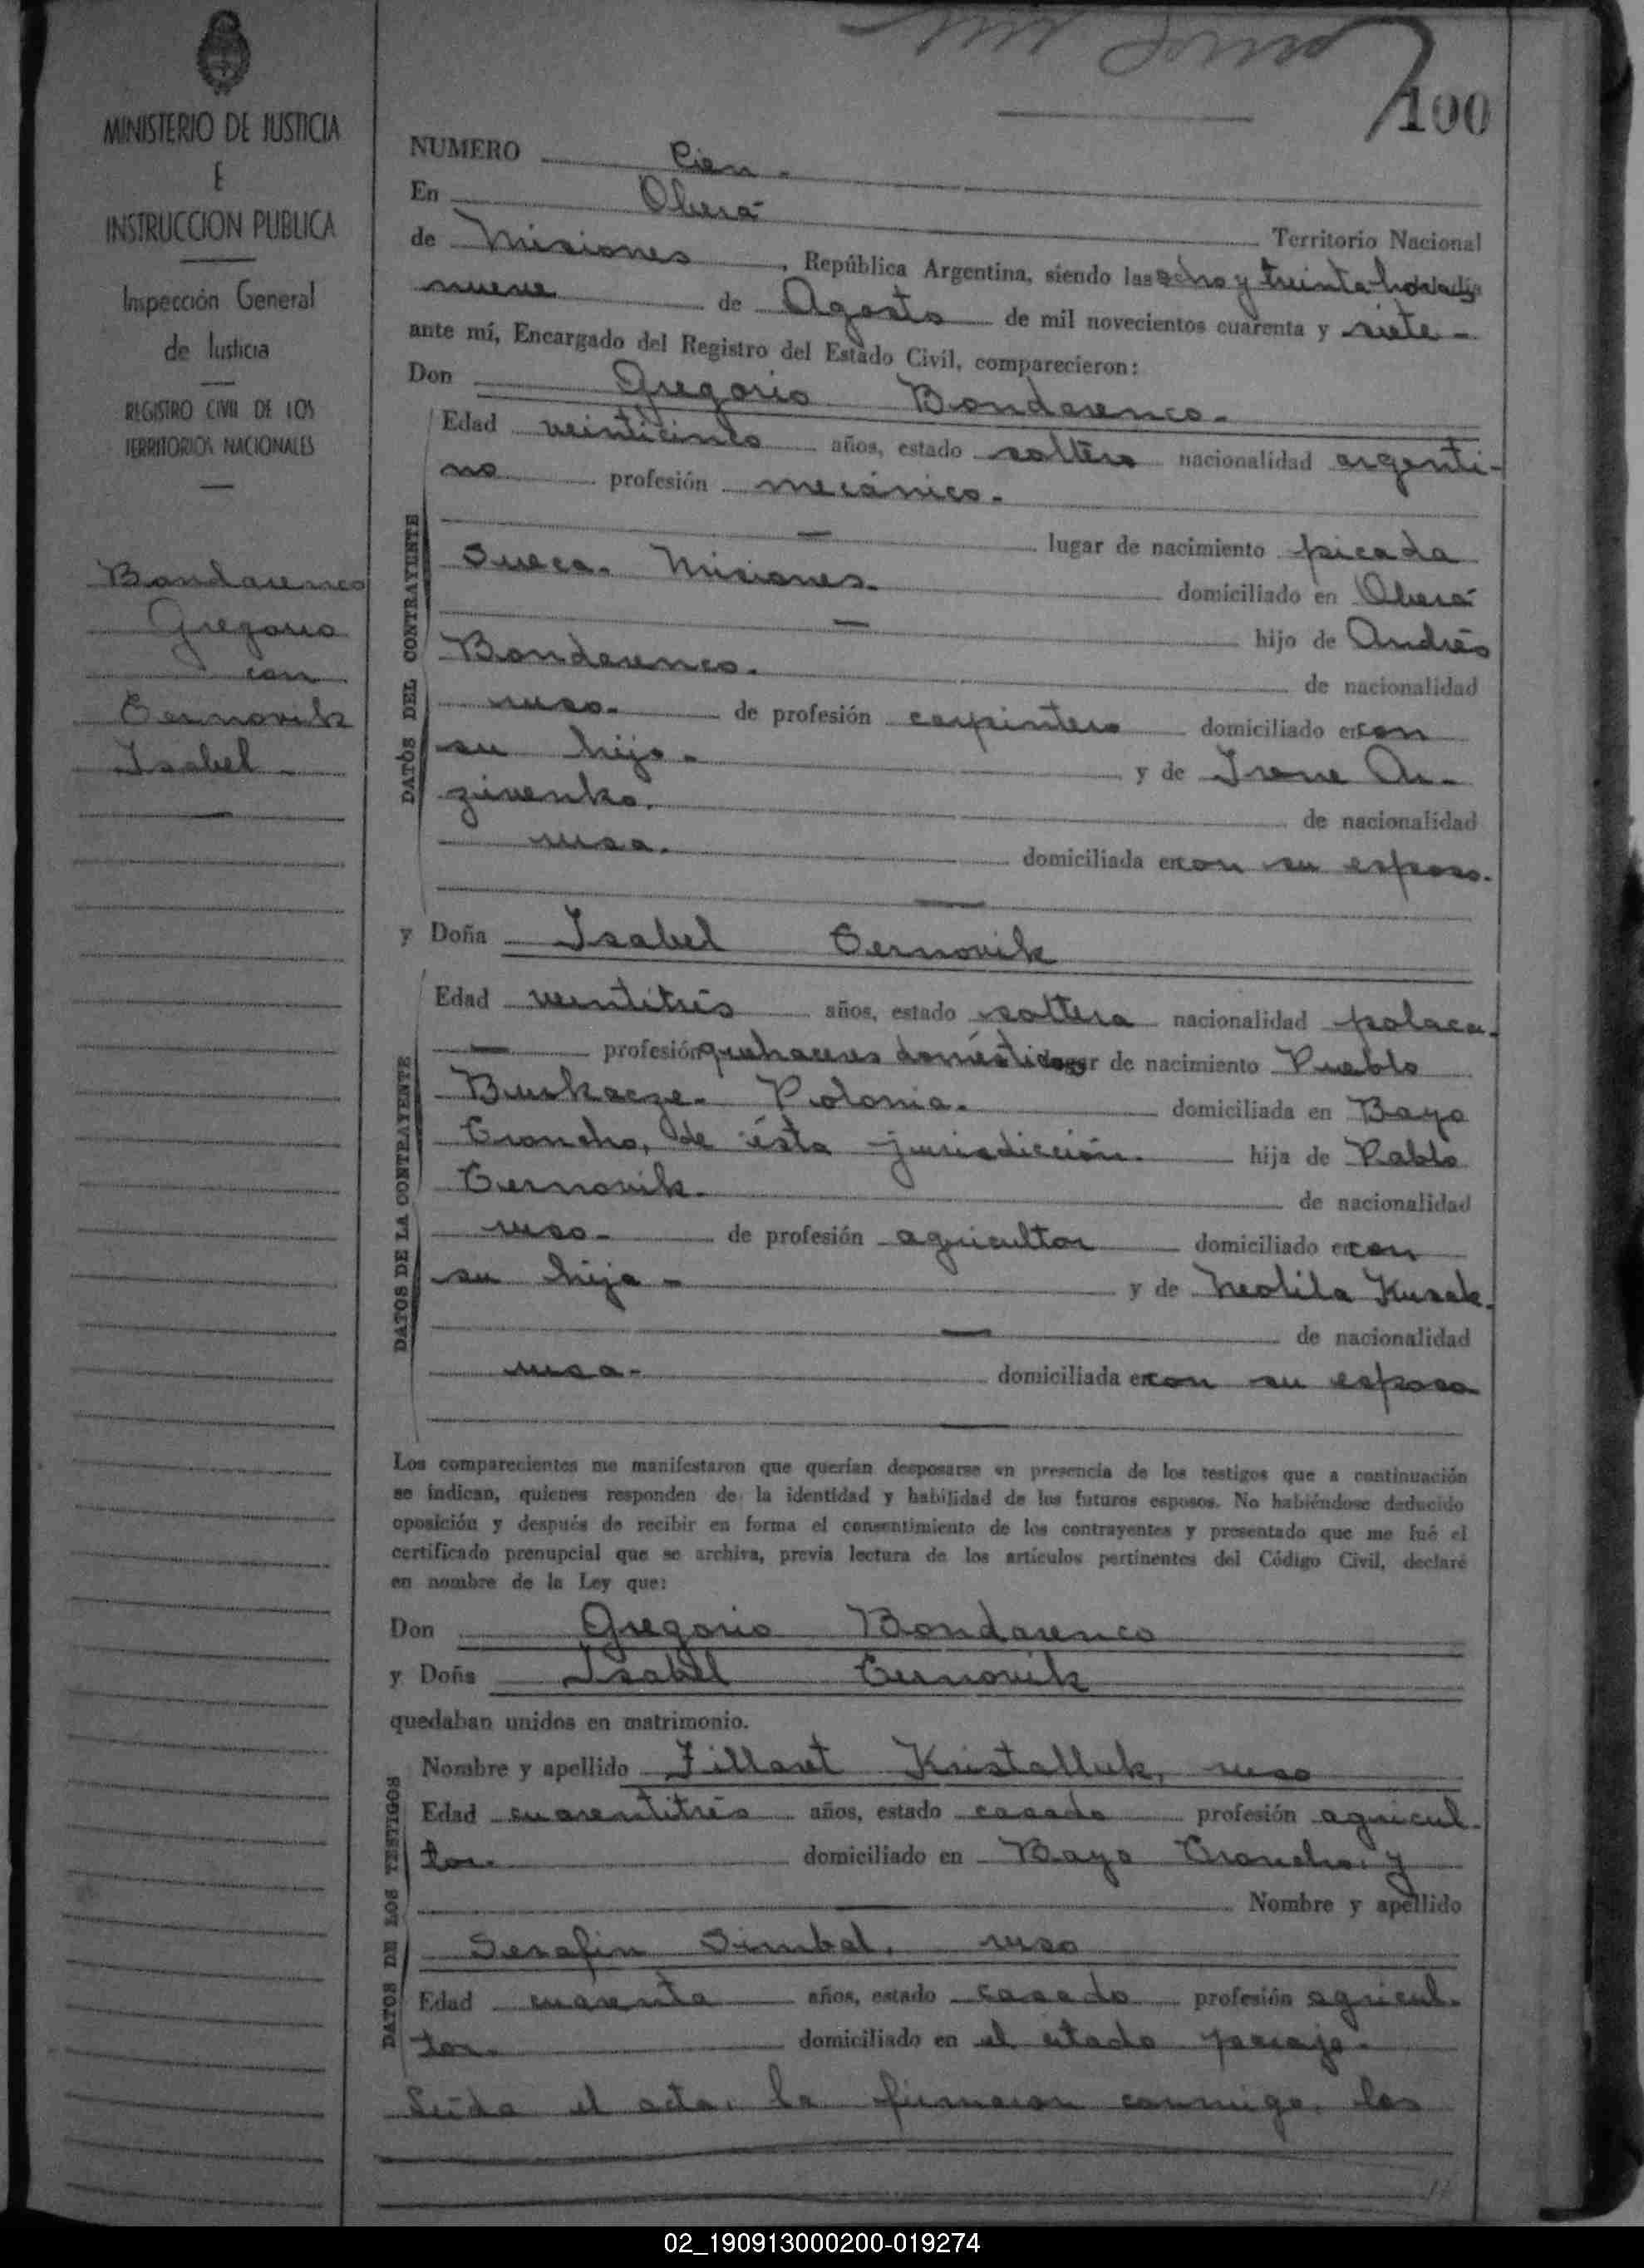 100
MINISTERIO DE JUSTICIA
E
INSTRUCCION PUBLICA
Inspección General
de Justicia
REGISTRO CIVIL DE LOS
TERRITORIOS NACIONALES
Bondarenco
Gregorio
con
Cernovik
Isabel
NUMERO Cien.
En Oberá Territorio Nacional
de Misiones, República Argentina, siendo las ocho y treinta horas
nueve de Agosto de mil novecientos cuarenta y siete
ante mí, Encargado del Registro del Estado Civil, comparecieron:
Don Gregorio Bondarenco.
DATOS DEL CONTRAYENTE
Edad veinticinco años, estado soltero nacionalidad argenti-
no profesión mecánico.
lugar de nacimiento picada
Sueca. Misiones. domiciliado en Oberá
hijo de Andrés
Bondarenco. de nacionalidad
ruso. de profesión carpintero domiciliado en con
su hijo - y de Irene
de nacionalidad
rusa. domiciliada en con su esposo.
y Doña Isabel Cernovik
DATOS DE LA CONTRAYENTE
Edad veintitrés años, estado soltera nacionalidad polaca.
profesión quehaceres domésticos lugar de nacimiento Pueblo
Polonia. domiciliada en Bayo
Troncho, de ésta jurisdicción. hija de Pablo
Cernovik. de nacionalidad
ruso - de profesión agricultor domiciliado en con
su hija - y de Kusak.
de nacionalidad
rusa - domiciliada en con su esposo
Los comparecientes me manifestaron que querían desposarse en presencia de los testigos que a continuación
se indican, quienes responden de la identidad y habilidad de los futuros esposos. No habiéndose deducido
oposición y después de recibir en forma el consentimiento de los contrayentes y presentado que me fué el
certificado prenupcial que se archiva, previa lectura de los artículos pertinentes del Código Civil, declaré
en nombre de la Ley que:
Don Gregorio Bondarenco
y Doña Isabel Cernovik
quedaban unidos en matrimonio.
DATOS DE LOS TESTIGOS
Nombre y apellido Fillaret Kristalluk, ruso
Edad cuarentitrés años, estado casado profesión agricul-
tor. domiciliado en Bayo Troncho. y
Nombre y apellido
Serafin Simbal, ruso
Edad cuarenta años, estado casado profesión agricul-
tor. domiciliado en el citado paraje.
Leída el acta, la firmaron conmigo, los
02_190913000200-019274